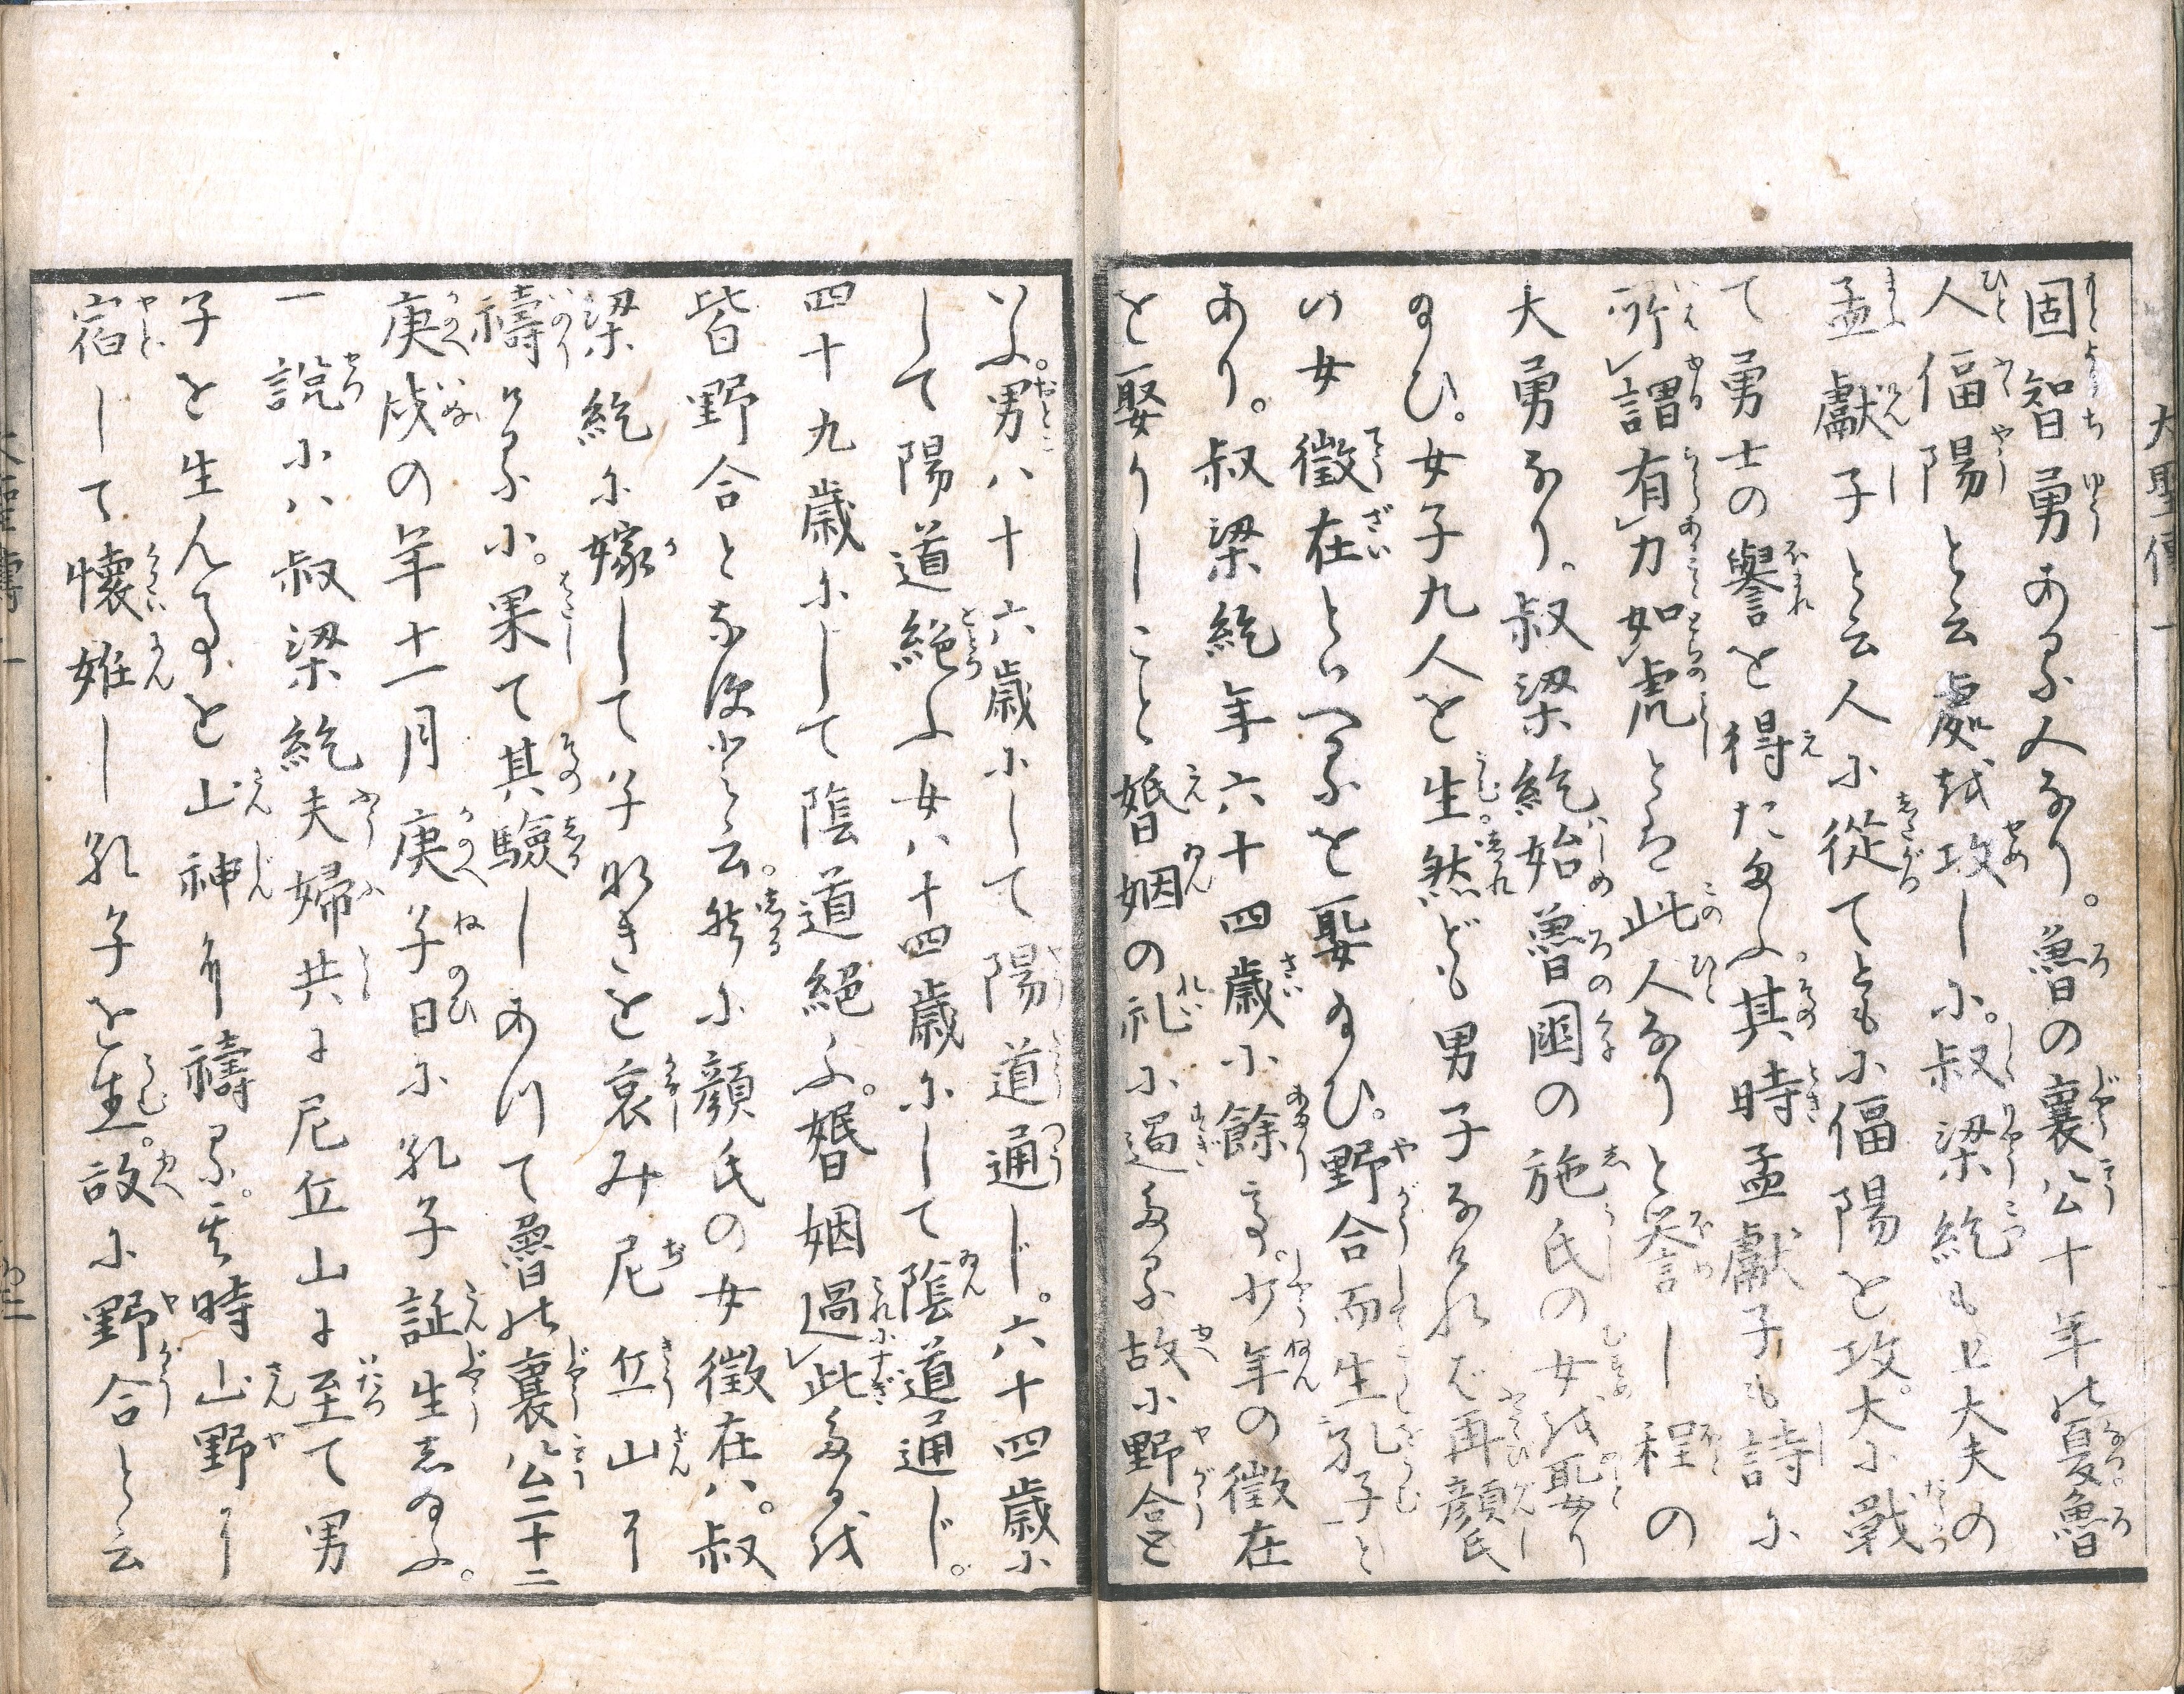 固智勇ある人なり。魯の襄公十年の夏。魯
人偪陽と云處を攻しに。叔梁紇も上大夫の
孟獻子と云人に從てともに偪陽を攻。大に戰
て勇士の譽を得たまふ。其時孟獻子も詩に
所謂有力如虎とは此人なりと誉し程の
大勇なり。叔梁紇始魯国の施氏の女を娶り
給ひ。女子九人を生。然ども男子なければ再顔氏
の女徴在といへるを娶給ひ。野合而生孔子と
あり。叔梁紇年六十四歳に餘て。少年の徴在
を娶りしこと婚姻の礼に過たる故に野合と
いふ。男ハ十六歳にして陽道通じ。六十四歳に
して陽道絶ふ女ハ十四歳にして陰道通じ。
四十九歳にして陰道絶ふ。婚姻過此たるを
皆野合となすと云。然るに顔氏の女徴在ハ。叔
梁紇に嫁して子なきを哀み尼丘山に
禱るに。果て其驗しあつて魯の襄公二十二
庚戌の年十一月庚子日に孔子誕生し給ふ。
一説にハ叔梁紇夫婦共に尼丘山に至て男
子を生んことを山神に禱る。其時山野に
宿して懐姙し孔子を生。故に野合と云